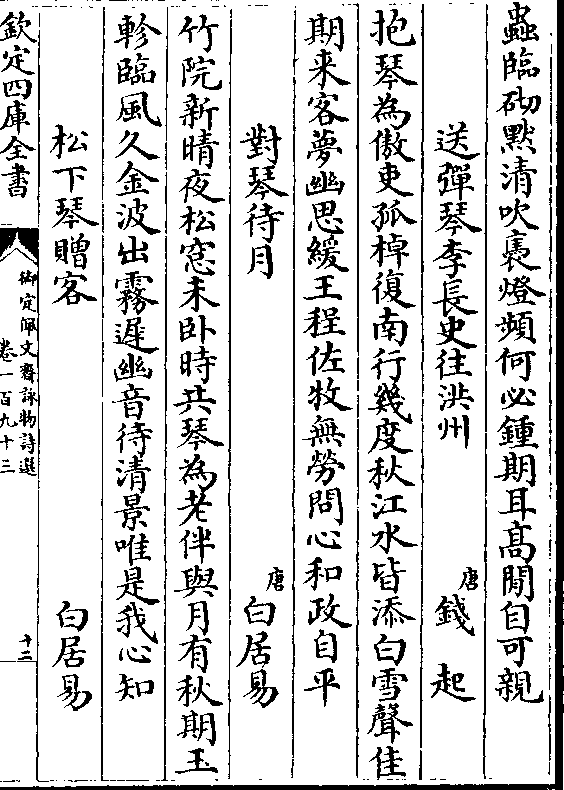 蟲臨砌默清吹裛燈頻何必鍾期耳高閒自可親
送彈琴李長史往洪州　唐　錢　起
抱琴為傲吏孤棹復南行幾度秋江水皆添白雪聲佳
期来客夢幽思緩王程佐牧無勞問心和政自平
對琴待月　唐　白居易
竹院新晴夜松窓未卧時共琴為老伴與月有秋期玉
軫臨風久金波出霧遲幽音待清景唯是我心知
松下琴贈客　白居易
欽定四庫全書
御定佩文齋詠物詩選
卷一百九十三
十二